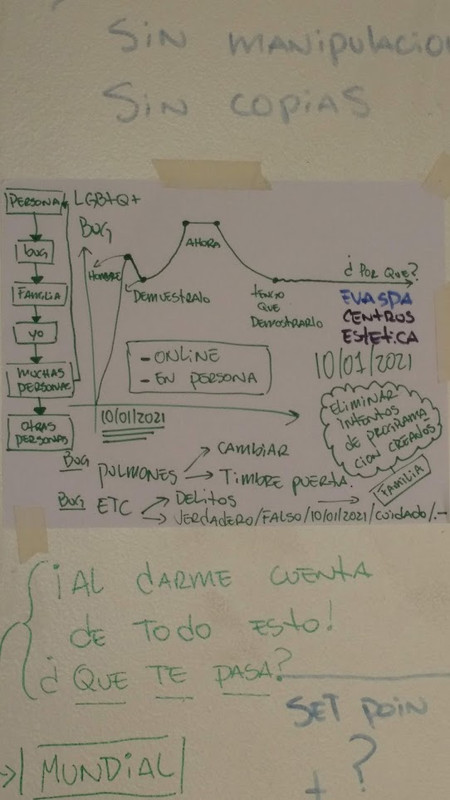 SIN MANIPULACION
SIN COPIAS
PERSONA
BUG
FAMILIA
YO
MUCHAS
PERSONAS
OTRAS
PERSONAS
LGBTQ+
BUG
HOMBRE
DEMUESTRALO
AHORA
TENGO
QUE
DEMOSTRARLO
¿POR QUE?
EVASPA
CENTROS
ESTETICA
10/01/2021
- ONLINE
- EN PERSONA
10/01/2021
ELIMINAR
INTENTOS
DE PROGRAMA
CION CREANDOS
BUG PULMONES → CAMBIAR
→ TIMBRE PUERTA.
BUG ETC → DELITOS → FAMILIA
→ VERDADERO/FALSO/10/01/2021/CUIDADO/.-
¡AL DARME CUENTA
DE TODO ESTO!
¿QUE TE PASA?
SET POIN
?
+
→ MUNDIAL